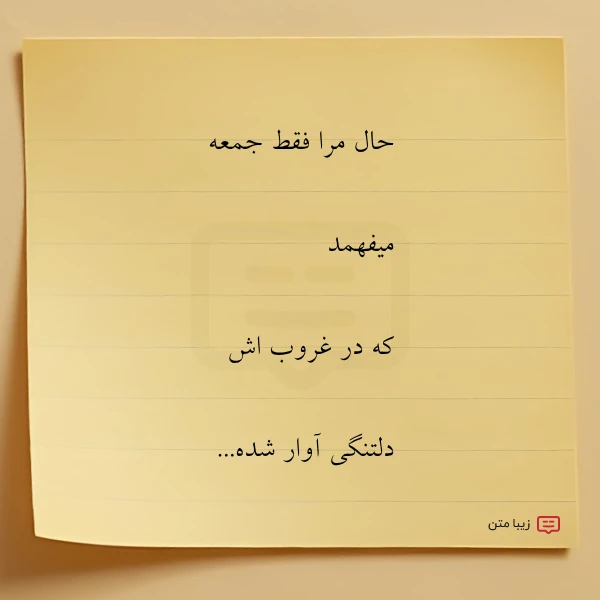 حال مرا فقط جمعه
میفهمد
که در غروب اش
دلتنگی آوار شده...
زیبا متن